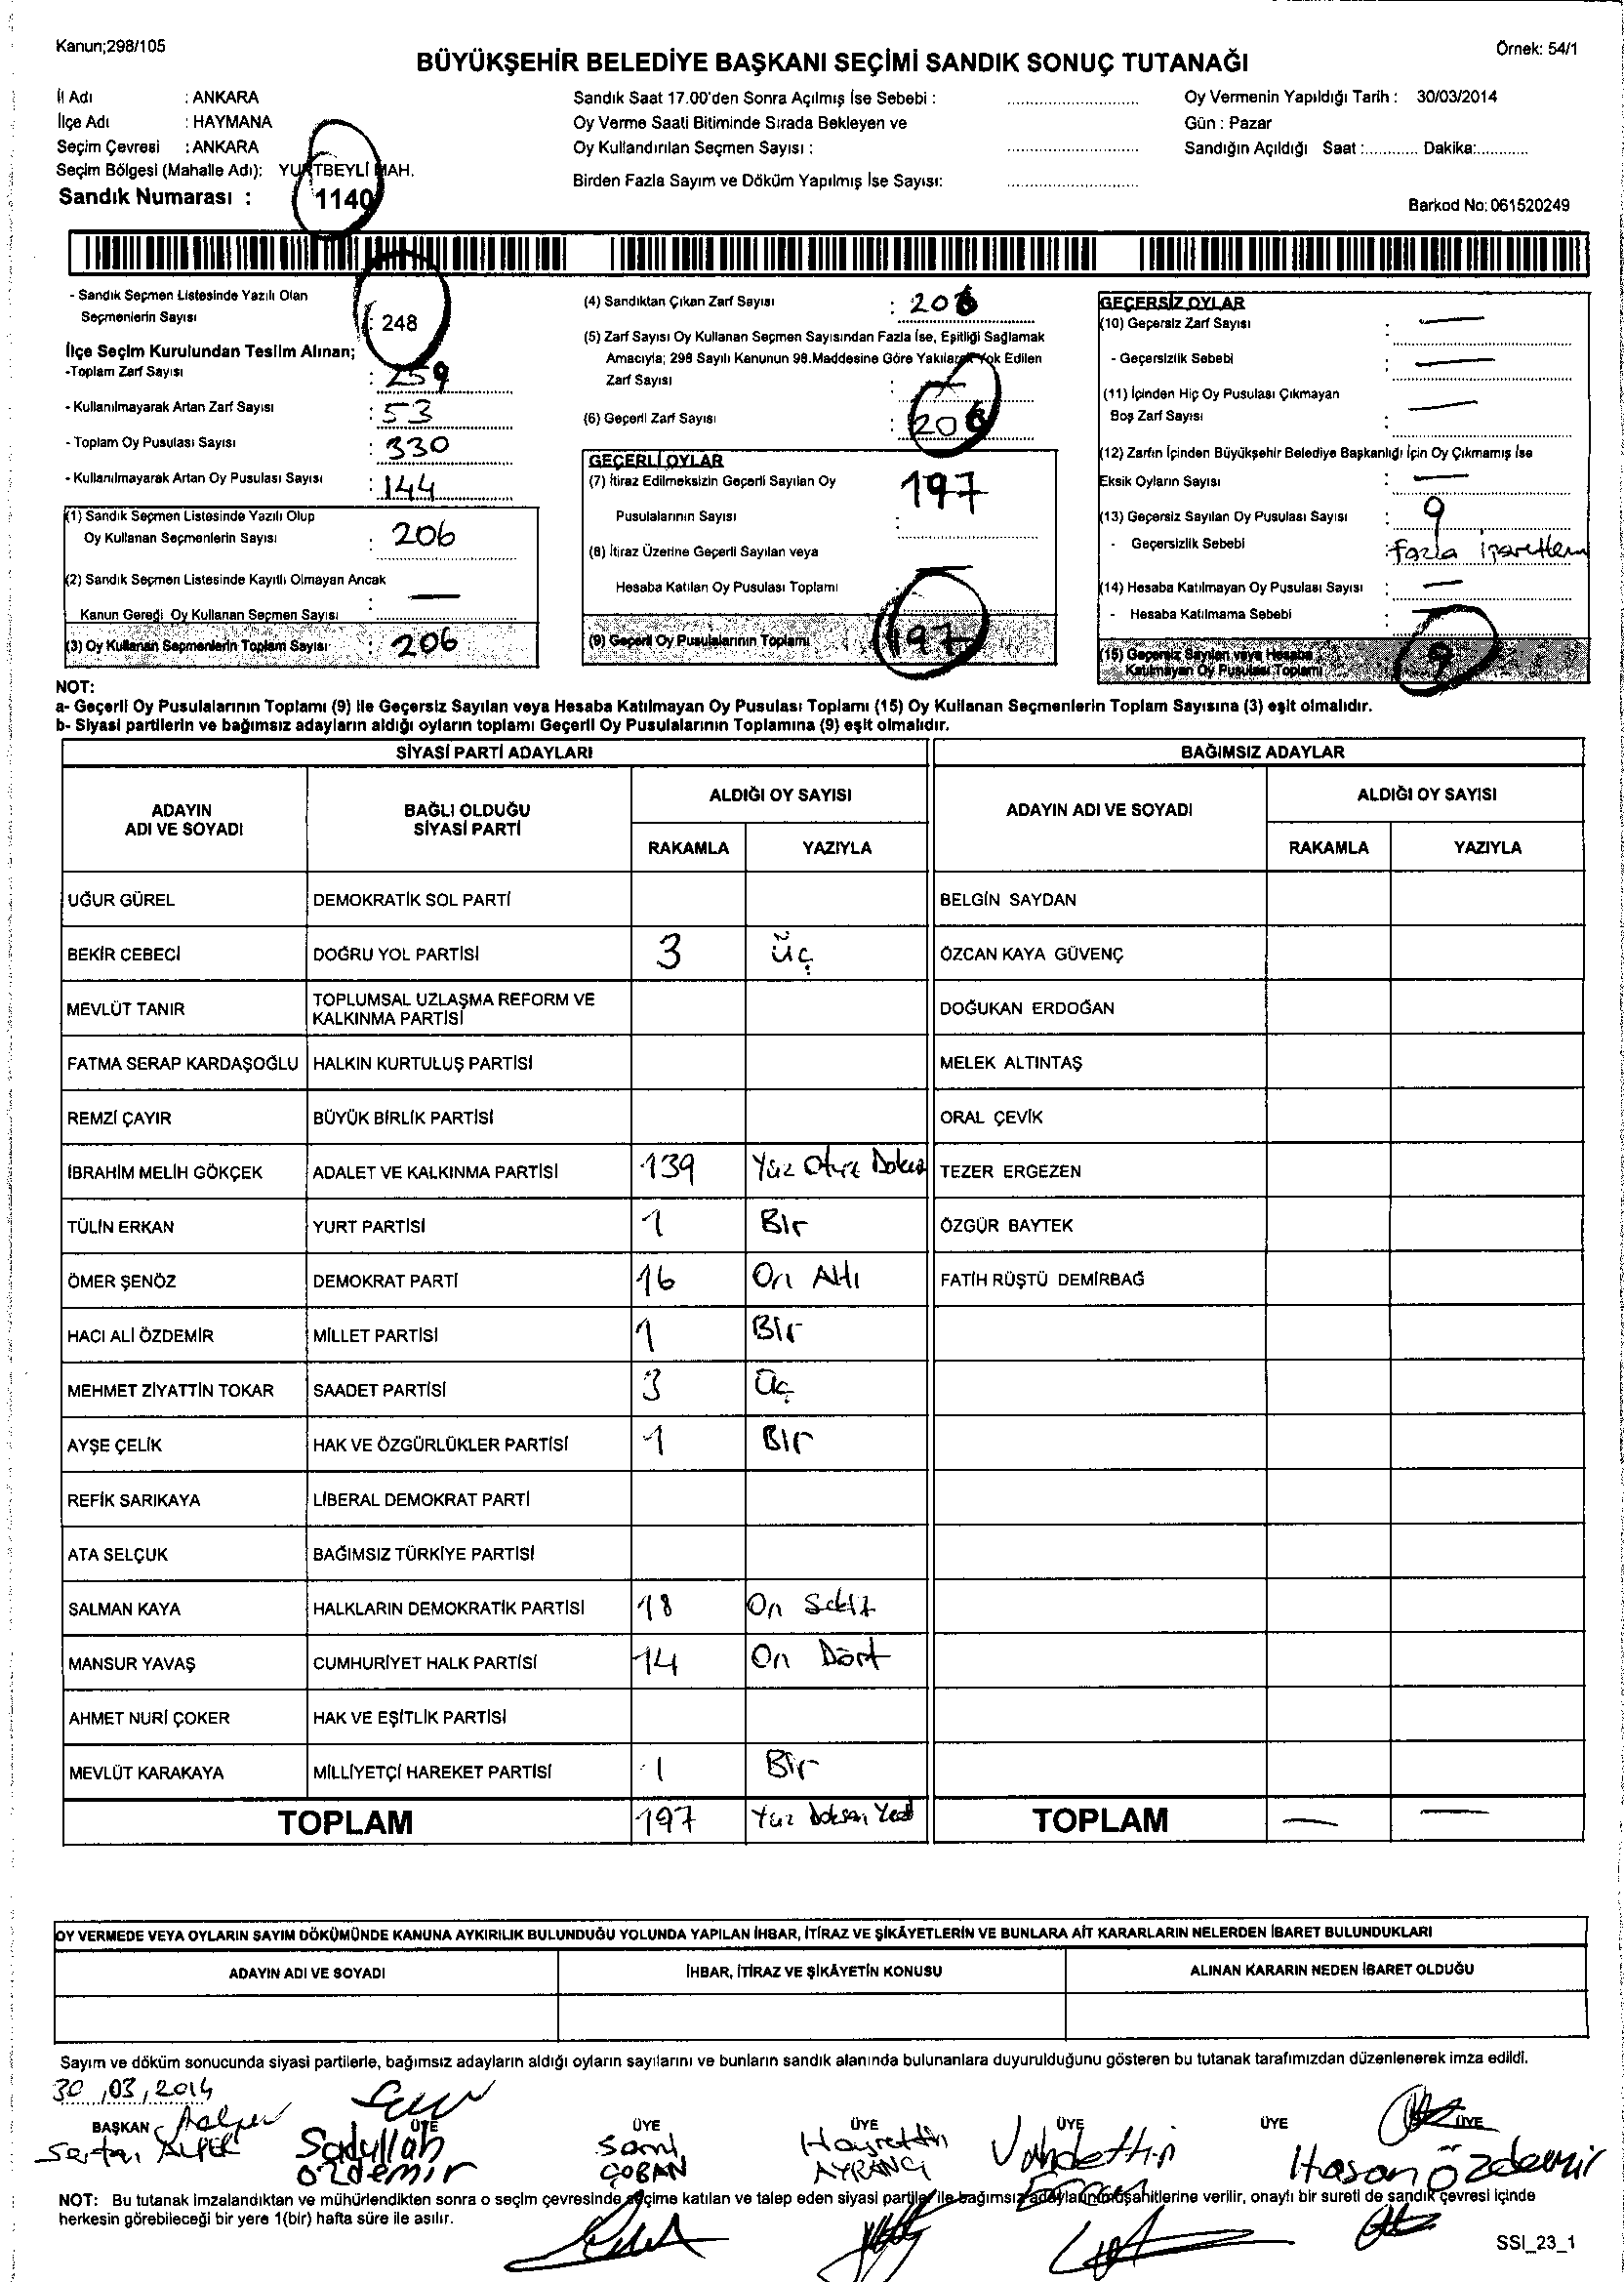 Kanun;298/105
Örnek: 54/1
BÜYÜKŞEHİR BELEDİYE BAŞKANI SEÇİMİ SANDIK SONUÇ TUTANAĞI
İl Adı : ANKARA
İlçe Adı : HAYMANA
Seçim Çevresi : ANKARA
Seçim Bölgesi (Mahalle Adı): YURTBEYLİ MAH.
Sandık Numarası : 1140
Sandık Saat 17.00'den Sonra Açılmış İse Sebebi :
Oy Verme Saati Bitiminde Sırada Bekleyen ve
Oy Kullandırılan Seçmen Sayısı :
Birden Fazla Sayım ve Döküm Yapılmış İse Sayısı:
Oy Vermenin Yapıldığı Tarih : 30/03/2014
Gün : Pazar
Sandığın Açıldığı Saat :............ Dakika:............
Barkod No: 061520249
- Sandık Seçmen Listesinde Yazılı Olan
Seçmenlerin Sayısı : 248
İlçe Seçim Kurulundan Teslim Alınan;
-Toplam Zarf Sayısı : 259
- Kullanılmayarak Artan Zarf Sayısı : 53
- Toplam Oy Pusulası Sayısı : 330
- Kullanılmayarak Artan Oy Pusulası Sayısı : 144
(1) Sandık Seçmen Listesinde Yazılı Olup
Oy Kullanan Seçmenlerin Sayısı : 206
(2) Sandık Seçmen Listesinde Kayıtlı Olmayan Ancak
Kanun Gereği Oy Kullanan Seçmen Sayısı : —
(3) Oy Kullanan Seçmenlerin Toplam Sayısı : 206
(4) Sandıktan Çıkan Zarf Sayısı : 206
(5) Zarf Sayısı Oy Kullanan Seçmen Sayısından Fazla İse, Eşitliği Sağlamak
Amacıyla; 298 Sayılı Kanunun 98.Maddesine Göre Yakılarak Yok Edilen
Zarf Sayısı : —
(6) Geçerli Zarf Sayısı : 206
GEÇERLİ OYLAR
(7) İtiraz Edilmeksizin Geçerli Sayılan Oy
Pusulalarının Sayısı : 197
(8) İtiraz Üzerine Geçerli Sayılan veya
Hesaba Katılan Oy Pusulası Toplamı : —
(9) Geçerli Oy Pusulalarının Toplamı 197
GEÇERSİZ OYLAR
(10) Geçersiz Zarf Sayısı : —
- Geçersizlik Sebebi : —
(11) İçinden Hiç Oy Pusulası Çıkmayan
Boş Zarf Sayısı : —
(12) Zarfın İçinden Büyükşehir Belediye Başkanlığı İçin Oy Çıkmamış İse
Eksik Oyların Sayısı : —
(13) Geçersiz Sayılan Oy Pusulası Sayısı : 9
- Geçersizlik Sebebi : fazla işaretleme
(14) Hesaba Katılmayan Oy Pusulası Sayısı : —
- Hesaba Katılmama Sebebi : —
(15) Geçersiz Sayılan veya Hesaba
Katılmayan Oy Pusulası Toplamı 9
NOT:
a- Geçerli Oy Pusulalarının Toplamı (9) ile Geçersiz Sayılan veya Hesaba Katılmayan Oy Pusulası Toplamı (15) Oy Kullanan Seçmenlerin Toplam Sayısına (3) eşit olmalıdır.
b- Siyasi partilerin ve bağımsız adayların aldığı oyların toplamı Geçerli Oy Pusulalarının Toplamına (9) eşit olmalıdır.
SİYASİ PARTİ ADAYLARI
BAĞIMSIZ ADAYLAR
ADAYIN
ADI VE SOYADI
BAĞLI OLDUĞU
SİYASİ PARTİ
ALDIĞI OY SAYISI
RAKAMLA YAZIYLA
ADAYIN ADI VE SOYADI
ALDIĞI OY SAYISI
RAKAMLA YAZIYLA
UĞUR GÜREL DEMOKRATİK SOL PARTİ BELGİN SAYDAN
BEKİR CEBECİ DOĞRU YOL PARTİSİ 3 üç ÖZCAN KAYA GÜVENÇ
MEVLÜT TANIR TOPLUMSAL UZLAŞMA REFORM VE
KALKINMA PARTİSİ DOĞUKAN ERDOĞAN
FATMA SERAP KARDAŞOĞLU HALKIN KURTULUŞ PARTİSİ MELEK ALTINTAŞ
REMZİ ÇAYIR BÜYÜK BİRLİK PARTİSİ ORAL ÇEVİK
İBRAHİM MELİH GÖKÇEK ADALET VE KALKINMA PARTİSİ 139 Yüz Otuz Dokuz TEZER ERGEZEN
TÜLİN ERKAN YURT PARTİSİ 1 Bir ÖZGÜR BAYTEK
ÖMER ŞENÖZ DEMOKRAT PARTİ 16 On Altı FATİH RÜŞTÜ DEMİRBAĞ
HACI ALİ ÖZDEMİR MİLLET PARTİSİ 1 Bir
MEHMET ZİYATTİN TOKAR SAADET PARTİSİ 3 Üç
AYŞE ÇELİK HAK VE ÖZGÜRLÜKLER PARTİSİ 1 Bir
REFİK SARIKAYA LİBERAL DEMOKRAT PARTİ
ATA SELÇUK BAĞIMSIZ TÜRKİYE PARTİSİ
SALMAN KAYA HALKLARIN DEMOKRATİK PARTİSİ 18 On Sekiz
MANSUR YAVAŞ CUMHURİYET HALK PARTİSİ 14 On Dört
AHMET NURİ ÇOKER HAK VE EŞİTLİK PARTİSİ
MEVLÜT KARAKAYA MİLLİYETÇİ HAREKET PARTİSİ 1 Bir
TOPLAM 197 Yüz Doksan Yedi TOPLAM — —
OY VERMEDE VEYA OYLARIN SAYIM DÖKÜMÜNDE KANUNA AYKIRILIK BULUNDUĞU YOLUNDA YAPILAN İHBAR, İTİRAZ VE ŞİKÂYETLERİN VE BUNLARA AİT KARARLARIN NELERDEN İBARET BULUNDUKLARI
ADAYIN ADI VE SOYADI İHBAR, İTİRAZ VE ŞİKÂYETİN KONUSU ALINAN KARARIN NEDEN İBARET OLDUĞU
Sayım ve döküm sonucunda siyasi partilerle, bağımsız adayların aldığı oyların sayılarını ve bunların sandık alanında bulunanlara duyurulduğunu gösteren bu tutanak tarafımızdan düzenlenerek imza edildi.
30,03,2014
BAŞKAN ÜYE ÜYE ÜYE ÜYE ÜYE ÜYE
Sertan ALPER Sadullah Sami Hayrettin Vahdettin Hasan Özdemir
özdemir ÇOBAN AYRANCI
NOT: Bu tutanak imzalandıktan ve mühürlendikten sonra o seçim çevresinde seçime katılan ve talep eden siyasi partiler ile bağımsız adayların müşahitlerine verilir, onaylı bir sureti de sandık çevresi içinde
herkesin görebileceği bir yere 1(bir) hafta süre ile asılır.
SSI_23_1